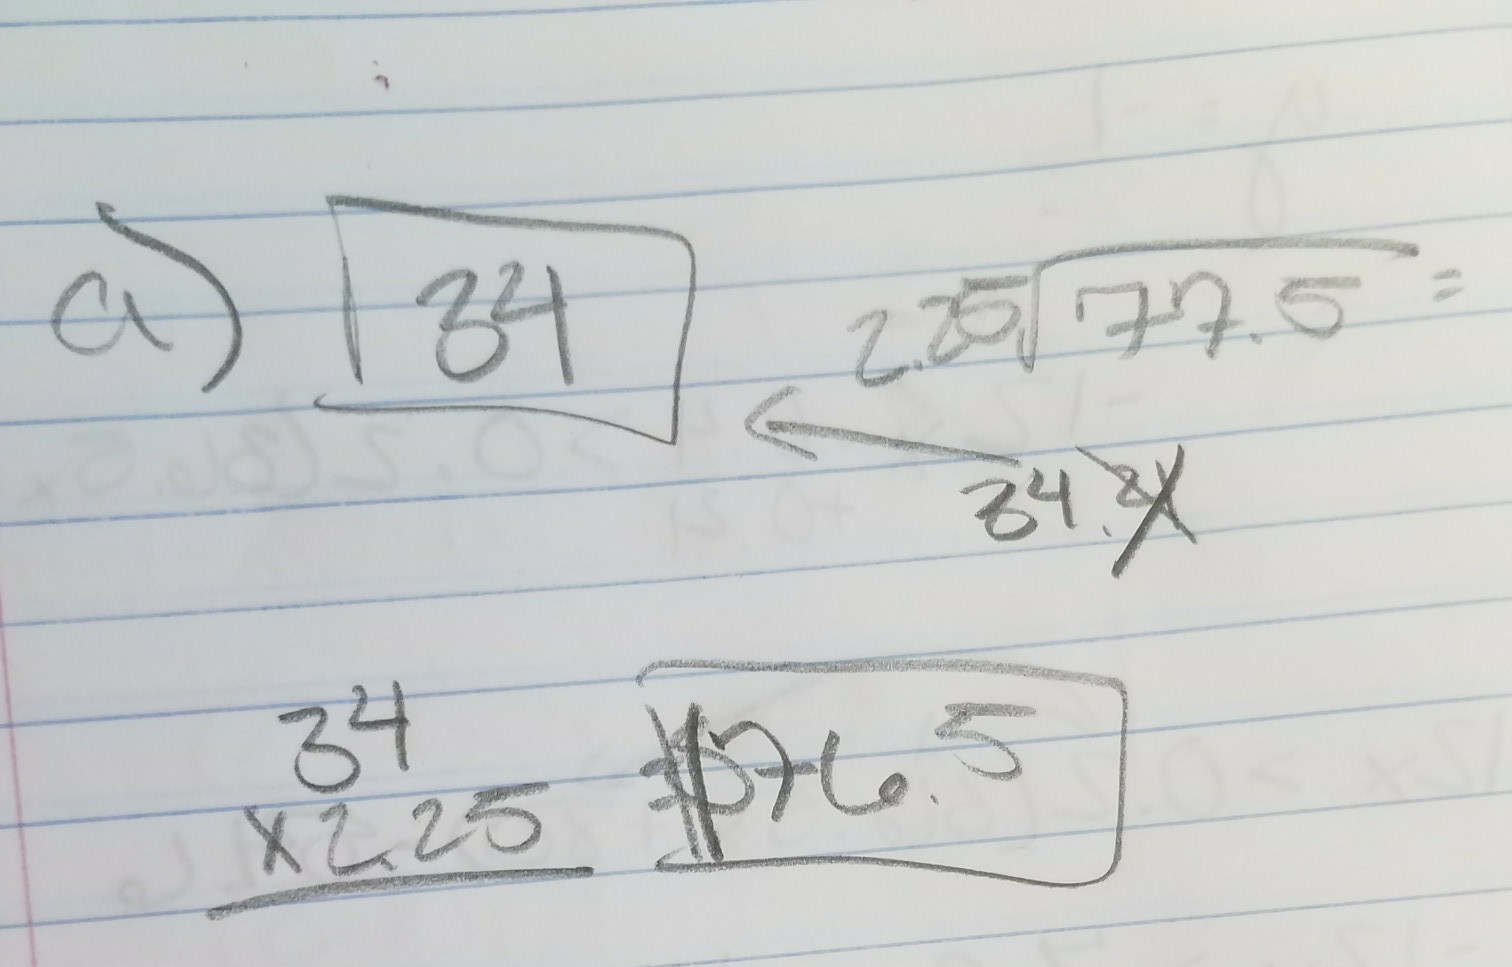 a) 34 2.25√77.5 =
34.
34
x2.25 = 76.5